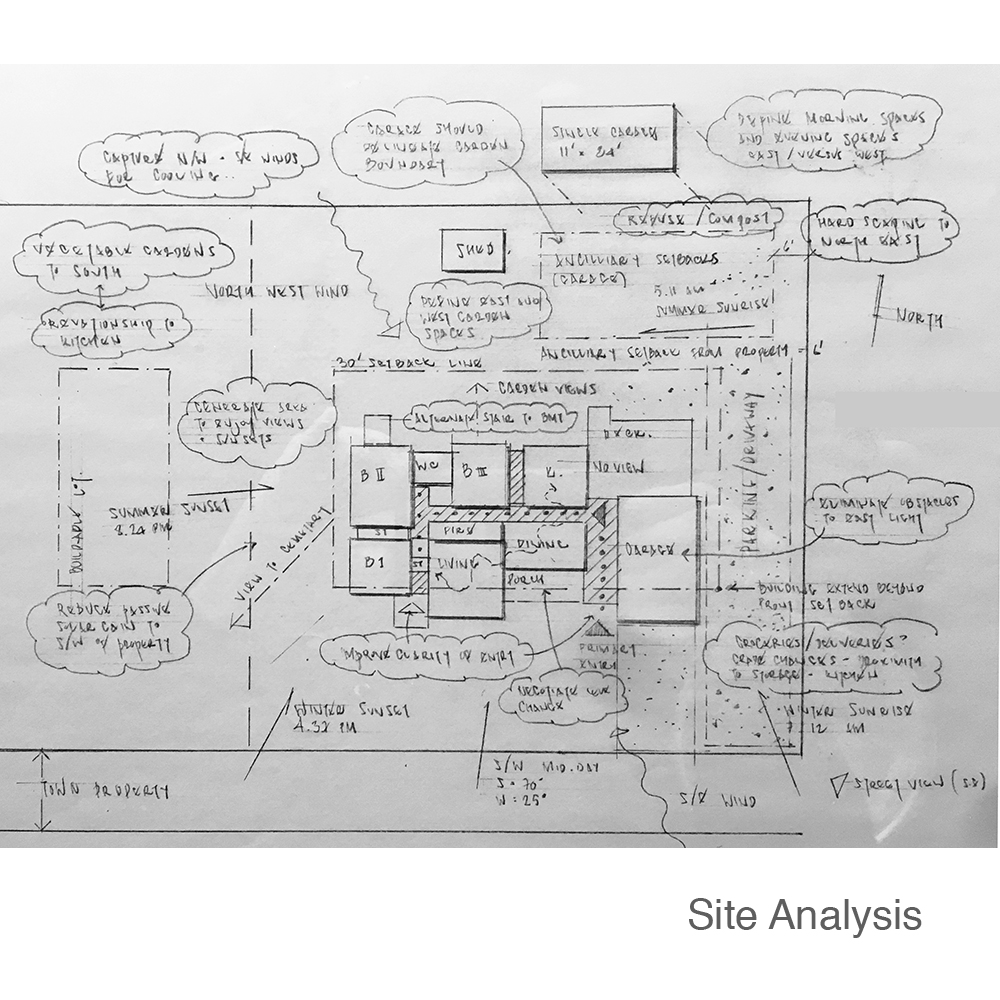 CAPTURE N/W - SE WINDS
FOR COOLING..
GARAGE SHOULD
DELINEATE GARDEN
BOUNDARY
SINGLE GARAGE
11' x 24'
DEFINE MORNING SPACES
AND EVENING SPACES
EAST / VERSUS WEST
VEGETABLE GARDENS
TO SOUTH
RELATIONSHIP TO
KITCHEN
NORTH WEST WIND
SHED
DEFINE EAST AND
WEST GARDEN
SPACES
REFUSE / COMPOST
ANCILLIARY SETBACKS
(GARAGE)
5.11 AM
SUMMER SUNRISE
6'
HARD SCAPING TO
NORTH EAST
NORTH
ANCILLIARY SETBACK FROM PROPERTY = 6'
30' SETBACK LINE
GARDEN VIEWS
ALTERNATE STAIR TO BMT
GENERATE AREA
TO ENJOY VIEWS
+ SUNSETS
DECK.
NO VIEW
B II
WC
B III
K.
SUMMER SUNSET
8.24 PM
BUILDABLE LOT
VIEW TO CEMETARY
ST
FIRE
B1
ST
LIVING
DINING
PORCH
GARAGE
PARKING/DRIVEWAY
ELIMINATE OBSTACLES
TO EAST LIGHT
BUILDING EXTEND BEYOND
FRONT SET BACK
REDUCE PASSIVE
SOLAR GAIN TO
S/W OF PROPERTY
IMPROVE CLARITY OF ENTRY
PRIMARY
ENTRY
NEGOTIATE LEVEL
CHANGE
GROCERIES/DELIVERIES?
GRADE CHANGES - PROXIMITY
TO STORAGE - KITCHEN
WINTER SUNSET
4.32 PM
WINTER SUNRISE
7.12 AM
S/W MID.DAY
S = 70°
W = 25°
S/E WIND
STREET VIEW (S.E)
TOWN PROPERTY
Site Analysis